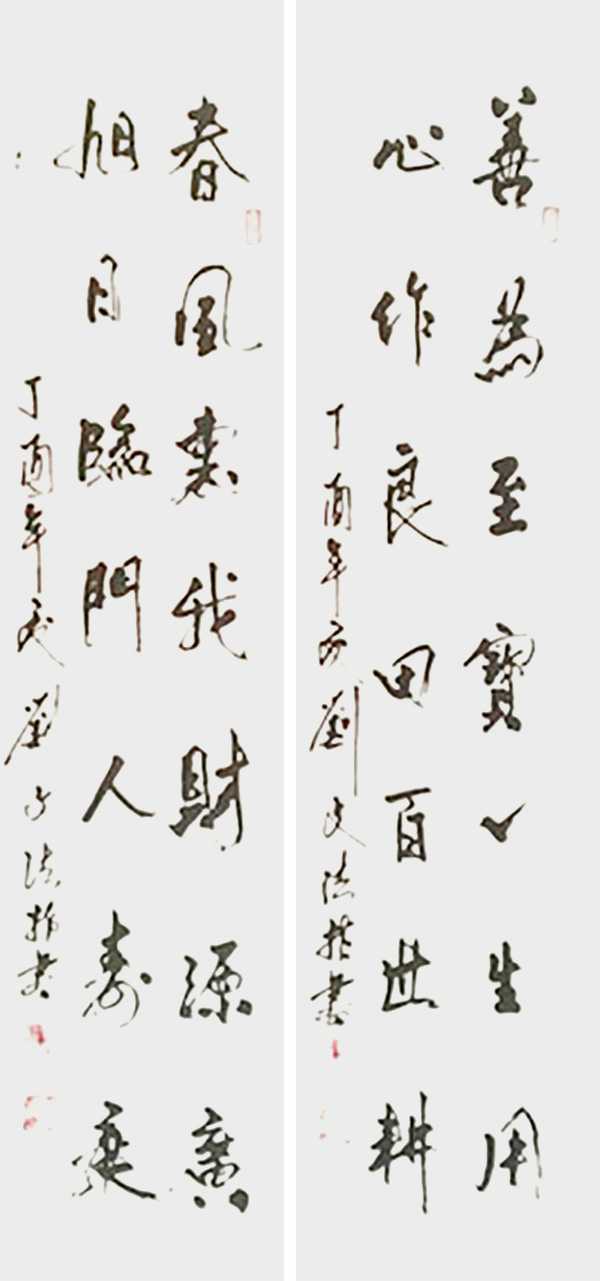 善為至寶一生用
心作良田百世耕
丁酉年 劉 法 書
春風 我財源廣
旭日臨門人壽
丁酉年 劉 法 書